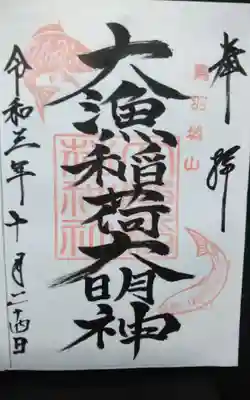 奉拝
鳥羽城山
大漁稲荷大明神
令和三年十月二十四日